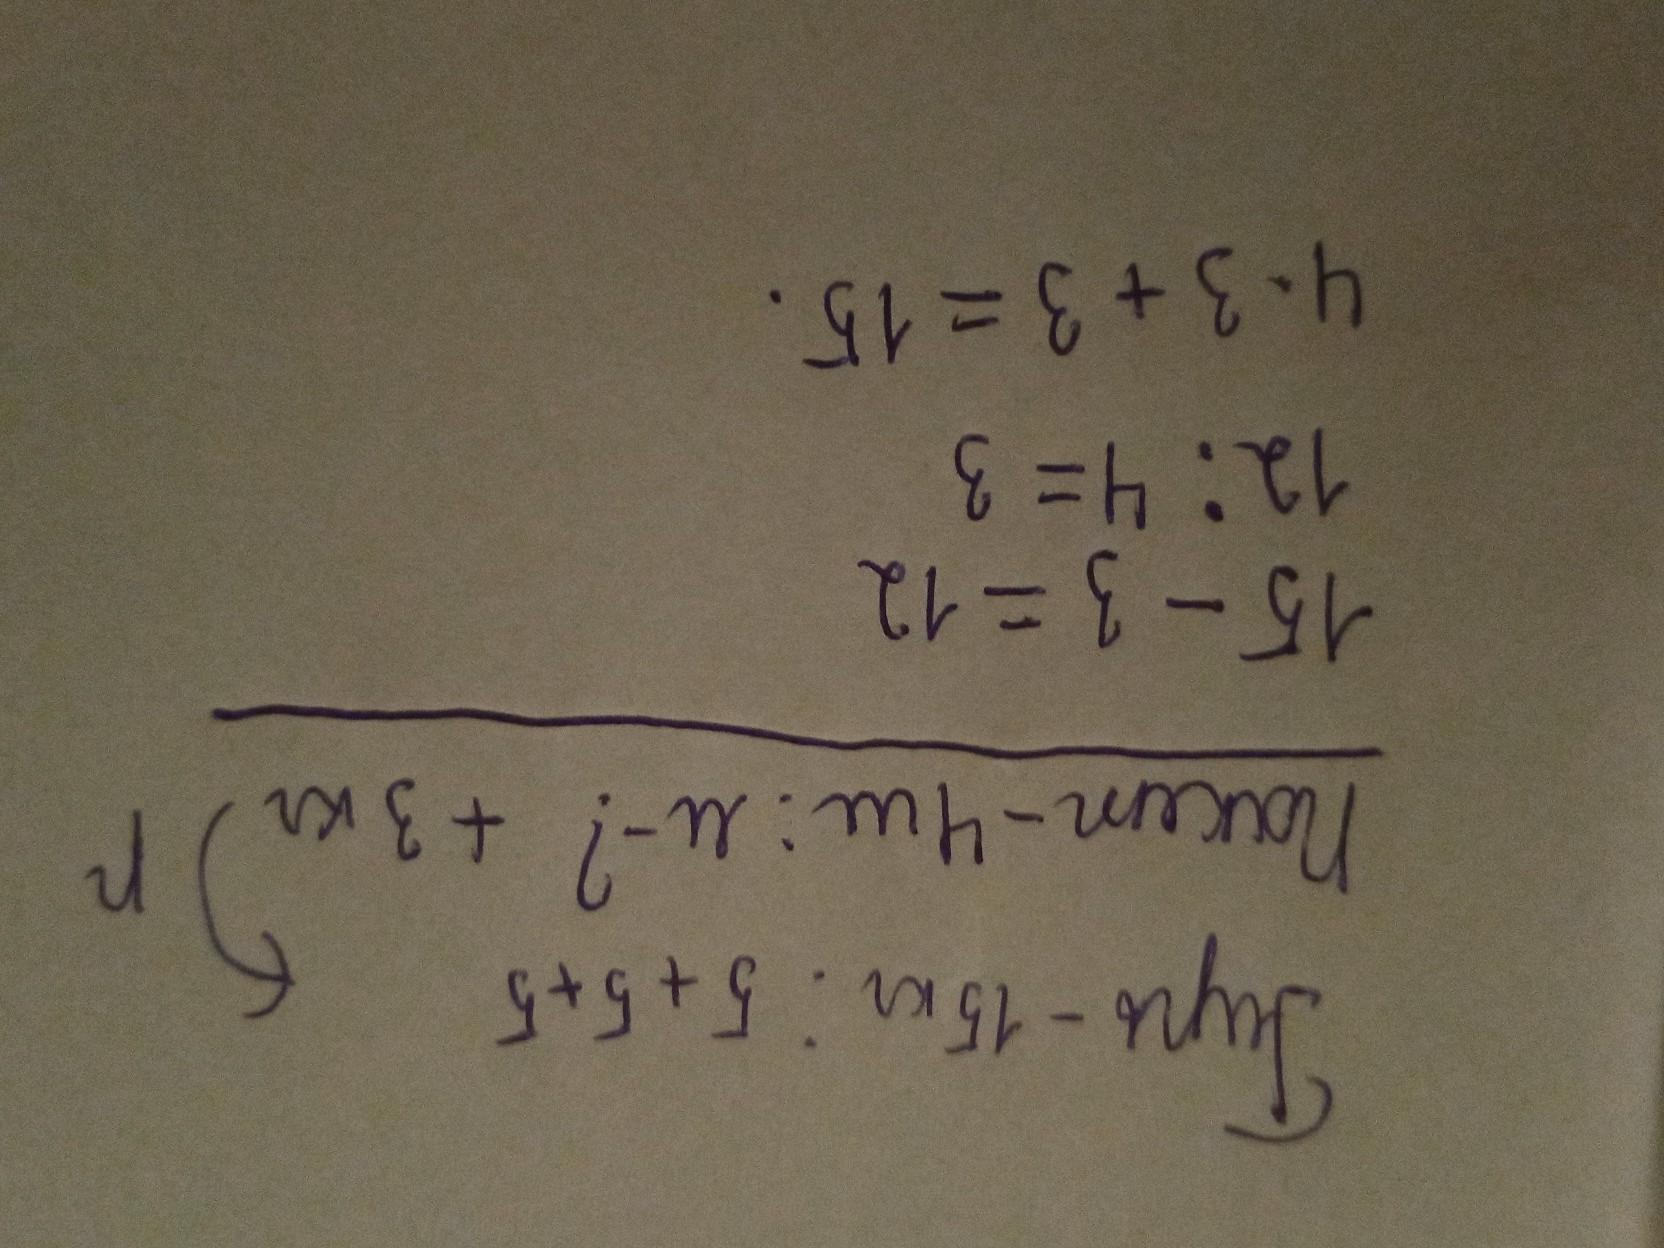 Гиря - 15 кг : 5 + 5 + 5
Пакет - 4 ш : м - ? + 3 кг р
15 - 3 = 12
12 : 4 = 3
4 · 3 + 3 = 15.